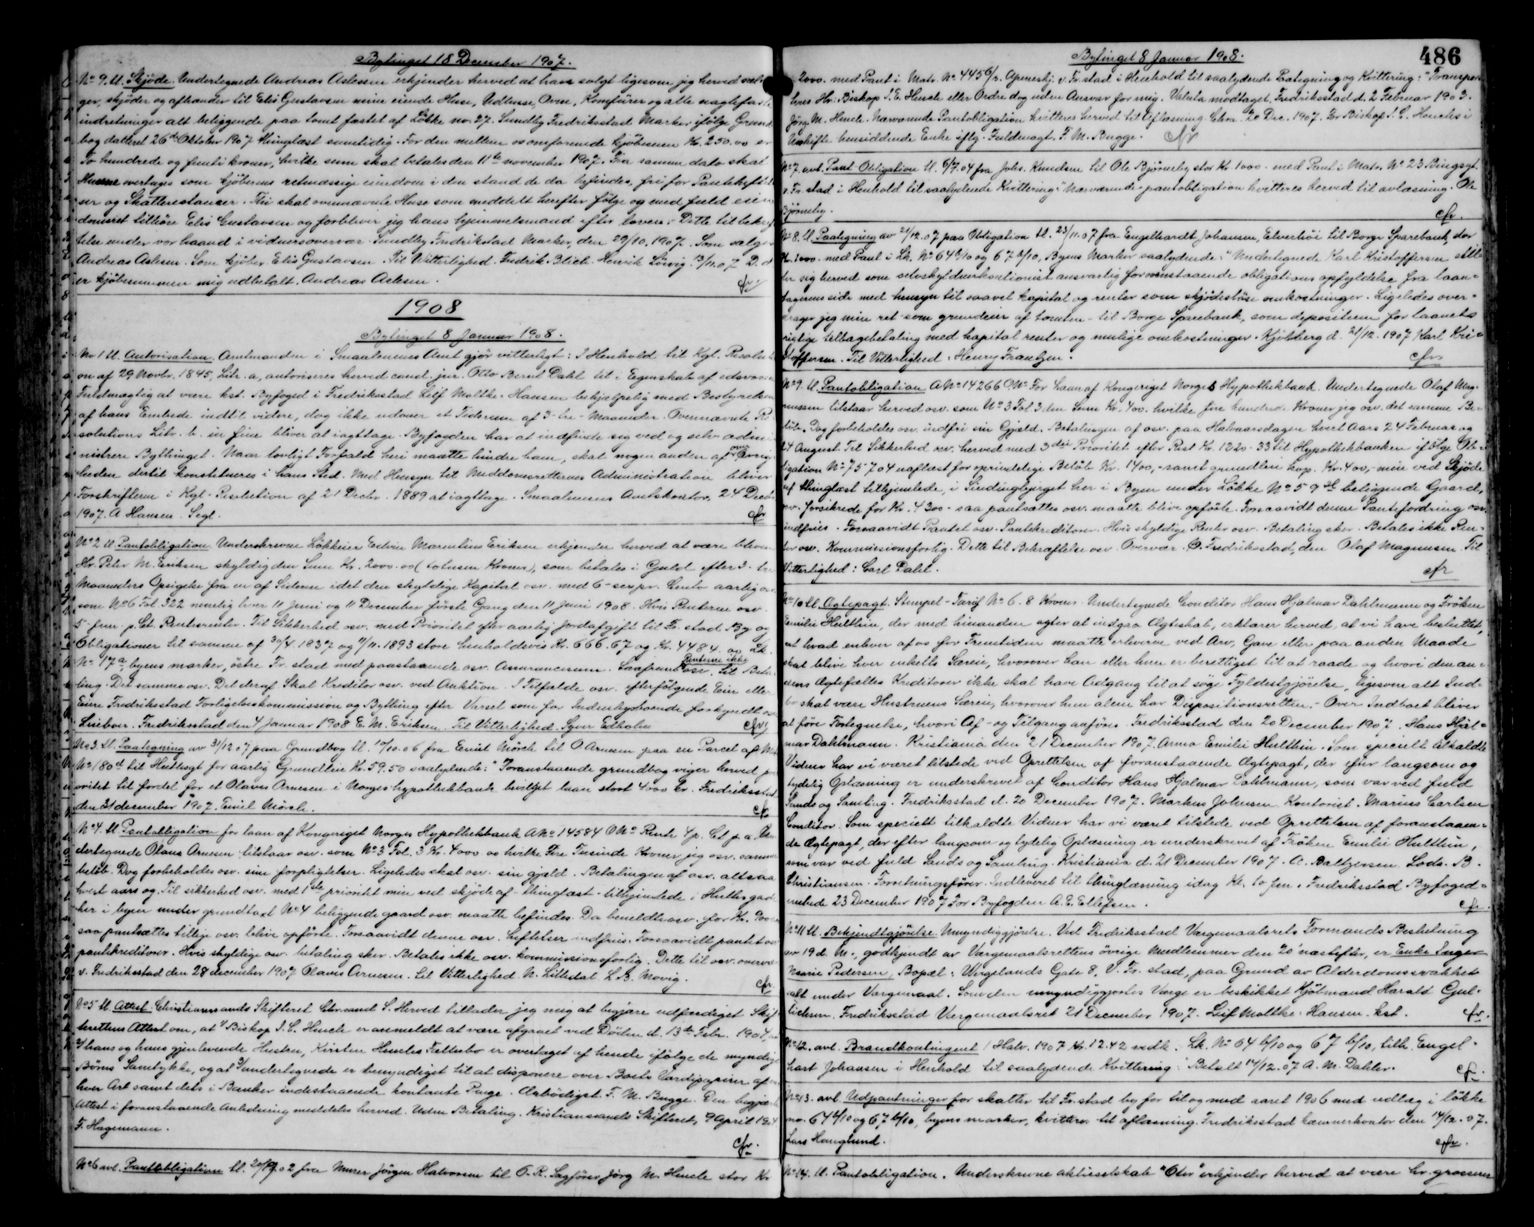 Bytinget 18 December 1907.
No 9. U. Skjøde. Undertegnede Andreas Aslesen erkjender herved at have solgt ligesom jeg herved
ger, skjøder og afhænder til Elis Gustavsen mine eiende Huse, Udhuse, Ovne, Komfurer og alle naglefaste
indretninger alt beliggende paa tomt fæstet af Løkke no. 27. Sundby Fredriksstad Marker ifølge Grund
bog dateret 26de Oktober 1907 thinglæst samtidig. For den mellem os omforenede kjøbesum Kr. 250.00 er
To hundrede og femti kroner, hvilke sum skal betales den 11te november 1907. Fra samme dato skal
Husene overtages som kjøberens retmæssige eiendom i den stand de da befindes, fri for Pantehæftel
ser og Skatterestancer. Thi skal ovennævnte Huse som meddelt herefter følge og med fuld eien
domsret tilhøre Elis Gustavsen og forbliver jeg hans hjemmelsmand efter loven. Dette til bekræf
telse under vor haand i vidners overvær. Sundby Fredrikstad Marker, den 29/10. 1907. Som sælger
Andreas Aslesen. Som kjøber Elis Gustavsen. Til Vitterlighed. Fredrik Blich. Henrik 13/11.07
er kjøbesummen mig udbetalt. Andreas Aslesen. cfr.
1908
Bytinget 8 Januar 1908.
No 1 U. Autorisation. Amtmanden i Smaalenenes Amt gjør vitterligt: I Henhold til Kgl. Resoluti
on af 29 Novbr. 1845, Litr. a, autoriseres herved cand. jur. Otto Bernt Dahl til i Egenskab af edsvoren
Fuldmægtig at være kst. Byfoged i Fredrikstad Leif Moltke Hansen behjælpelig med Bestyrelsen
af hans Embede indtil videre, dog ikke udover et Tidsrum af 3-tre-Maaneder. Ovennævnte Re
solutions Litr. b. in fine bliver at iagttage. Byfogden har at indfinde sig ved og selv admi
nistrere Bythinget. Naar lovligt Forfald heri maatte hindre ham, skal nogen anden af Øvrig
heden dertil konstitueres i hans Sted. Med Hensyn til Meddomsretternes Administration bliver
Forskrifterne i Kgl. Resolution af 21 Decbr. 1889 at iagttage. Smaalenenes Amtskontor, 24 Decbr
1907. A Hansen. Segl. cfr
No 2 U Pantobligation. Underskrevne Løkkeier Edvin Marentius Eriksen erkjender herved at være bleven
Hr. Peter M. Eriksen skyldig den Sum Kr. 2000.00 (to tusen Kroner), som betales i Guld efter 3-tre
Maaneders Opsigelse fra en af Siderne idet den skyldige Kapital osv. med 6-sex pr. Cent aarlig osv
som No 6 Fol. 322 nemlig hver 11 Juni og 11 December første Gang den 11 Juni 1908. Hvis Renterne osv.
5-fem p. Ct. Rentesrenter. Til Sikkerhed osv. med Prioritet efter aarlig jordafgift til Fr. stad By og
Obligationer til samme af 30/4 1837 og 11/11.1893 store henholdsvis Kr. 666.67 og Kr. 4484. osv. Lk.
No 17a byens marker, østre Fr. stad med paastaaende osv. Assurancesum. Saafremt Renterne ikke osv. til Beta
ling. Det samme osv. Det deraf Skal Kreditor osv. ved Auktion. I Tilfælde osv. efterfølgende Eier eller
Eiere Fredrikstad Forligelseskommission og Bything efter Varsel som for Indenbysboende forkyndt osv
Leieboer. Fredrikstad den 4 Januar 1908 E. M. Eriksen. Til Vitterlighed. cfr.
No 3. U. Paategning av 31/12 07 paa Grundbog tl. 17/10.06 fra Emil Mørch til O Arnesen paa en Parcel af M
No 180d til Huthogt for aarlig Grundleie Kr. 59.50 saalydende: "Foranstaaende grundbog viger herved pri
oritet til fordel for et Olaves Arnesen i Norges hypothekbank bevilget laan stort 4000 Kr. Fredriksstad
den 31 december 1907. Emil Mørch. cfr
No 4. U Pantobligation for laan af Kongeriget Norges Hypothekbank A No 14584 Rente 4 p. Ct. p.a. Un
dertegnede Olaus Arnesen tilstaar osv. som No 3 Fol. 3 Kr. 4000 00 hvilke Fire Tusinde Kroner jeg osv. samme
beløb. Dog forbeholdes osv. sine forpligtelser. Ligeledes skal osv. sin gjæld. Betalingen af osv. altsaa
hvert aars og. Til sikkerhed osv. med 1ste prioritet min ved skjøde af thinglæst tilhjemlede i Huthugad
her i byen under grundtaxt No 4 beliggende gaard osv. maatte befindes. Da bemeldte osv. for Kr.
saa pantsættes tillige osv. blive opførte. Foraavidt denne osv. heftelser indfries. Foraavidt pantet osv
pantkreditor. Hvis skyldige osv. betaling sker. Betales ikke osv. kommissionsforlig. Dette til osv. overvær
v. Fredriksstad den 28 december 1907. Olaves Arnesen. Til Vitterlighed N. Lilledal L. A. Movig. cfr
No 5 U Attest. Christianssands Skifteret. Chr.sand S. Herved tillader jeg mig at begjære udfærdiget Skif
terettens Attest om, at Biskop J. C. Heuch er anmeldt at være afgaaet ved Døden d. 13de Febr. 1904,
hans og hans gjenlevende Hustru, Kirsten Heuchs Fællesbo er overtaget af hende ifølge de myndige
Børns Samtykke, og at Undertegnede er bemyndiget til at disponere over Boets Værdipapirer af en
hver Art samt dets i Banker indestaaende kontante Penge. Ærbødigst F. M. Bugge. Den begjærte
Attest i foranstaaende Anledning meddeles herved. Uden Betaling. Kristianssands Skifteret, 9 April 1904
F. Hagemann. cfr.
No 6 avl. Pantobligation tl. 02 fra Murer Jørgen Halvorsen til O. R. Sagfører Jørg M. Heuch stor Kr
Bytinget 8 Januar 1908.
486
2000. med Pant i Matr. No 445 v. Fr. stad i Henhold til saalydende Paategning og Kvittering: "Transpor
teres Hr. Biskop J. C. Heuch eller Ordre dog uden Ansvar for mig. Valuta modtaget. Fredriksstad d. 2 Februar 1903.
Jørg M. Heuch. Nærværende Pantobligation kvitteres herved til Aflæsning. Chra. 20 Dec. 1907. For Biskop J. C. Heuchs i
Uskifte hensiddende Enke iflg. Fuldmagt. F. M. Bugge.
No 7. avl. Pant Obligation tl. 6/7.04 fra Johs. Knudsen til Ole Bjørneby stor Kr 1000- med Pant i Matr. No 23 Bingsgt.
v. Fr. stad i Henhold til saalydende Kvittering: Nærværende pantobligation kvitteres herved til avlæsning. Ole
Bjørneby. cfr.
No 8. U. Paategning av 21/12.07 paa Obligation tl. 23/11.07 fra Engelhardt Johansen, Elverhøi til Borge Sparebank, stor
Kr. 1000. med Pant i Lk. No 64 b/10 og 67 b/10, Byens Marker saalydende: "Undertegnede Karl Kristoffersen stille
r sig herved som selvskyldnerkautionist ansvarlig for ovenstaaende obligations opfyldelse fra laan-
tagerens side med hensyn til saavel kapital og renter som skjødesløse omkostninger. Ligeledes over-
drager jeg min ret som grundeier af tomten til Borge Sparebank, som depositum for laanets
rigtige tilbagebetaling med kapital renter og mulige omkostninger. Kjølberg d. 21/12. 1907 Karl Kri-
stoffersen. Til Vitterlighed: Henry Frantzen. cfr
No 9. U. Pantobligation A No 14266 For Laan af Kongeriget Norges Hypothekbank. Undertegnede Olaf Mag-
nussen tilstaar herved osv. som No 3 Fol 3 den Sum Kr. 400. hvilke fire hundrede Kroner jeg osv. det samme Be-
løb. Dog forbeholdes osv. indfri sin Gjæld. Betalingen af osv. paa Halvaarsdagen hvert Aars 24 Februar og
24 August. Til Sikkerhed osv. herved med 3die Prioritet efter Rest Kr. 1220.33 til Hypothekbanken ifølge Ob-
ligation No 75704 nedlæst for oprindelige Beløb Kr. 1400,- samt grundleie kap. Kr. 400, min ved Skjøde
af thinglæst tilhjemlede, i Sindingbjerget her i Byen under Løkke No 59 beliggende Gaard,
osv. forsikrede for Kr. 4300- saa pantsættes osv. maatte blive opførte. Foraavidt denne Pantefordring osv.
indfries. Foraavidt Pantet osv. Pantekreditor. Hvis skyldige Renter osv. Betaling sker. Betales ikke Ren-
ter osv. Kommissionsforlig. Dette til Bekræftelse osv. Overvær. Fredriksstad, den Olaf Magnussen Til
Vitterlighed: Carl Dahl. cfr
No 10 U. Ægtepagt. Stempel-Tarif No 6. 8 Kroner. Undertegnede Conditor Hans Hjalmar Dahlmann og Frøken
Emilie Hulthin, der med hinanden agter at indgaa Ægteskab, erklærer herved, at vi have besluttet,
at hvad enhver af os for Fremtiden maatte erhverve ved Arv, Gave eller paa anden Maade
skal blive hver enkelts Særeie, hvorover han eller hun er berettiget til at raade og hvori den an-
dens Ægtefælles Kreditorer ikke skal have Adgang til at søge Fyldestgjørelse, ligesom alt Ind-
bo skal være Hustruens Særeie, hvorover hun alene har Dispositionsretten. Over Indboet bliver
at føre Fortegnelse, hvori Af- og Tilgang anføres. Fredrikstad den 20 December 1907. Hans Hjal-
mar Dahlmann. Kristiania den 21 December 1907. Anna Emilie Hulthin. Som specielt tilkaldte
Vidner har vi været tilstede ved Oprettelsen af foranstaaende Ægtepagt, der efter langsom og
tydelig Oplæsning er underskrevet af Conditor Hans Hjalmar Dahlmann, som var ved fuld
Sands og Samling. Fredrikstad d. 20 December 1907. Markus Johnsen Kontorist. Marius Carlsen
Conditor. Som specielt tilkaldte Vidner har vi været tilstede ved Oprettelsen af foranstaaen-
de Ægtepagt, der efter langsom og tydelig Oplæsning er underskrevet af Frøken Emilie Hulthin,
som var ved fuld Sands og Samling. Kristiania d. 21 December 1907. C. Beltzersen Lods. B.
Christiansen. Forretningsfører. Indleveret til thinglæsning idag Kl. 10 fm. Fredriksstad Byfoged-
embed 23 December 1907 For Byfogden A. E. Ellefsen. cfr.
No 11 U. Bekjendtgjørelse. Umyndiggjørelse. Ved Fredriksstad Værgemaalsrets Formands Beslutning
av 19 d. M. godkjendt av Værgemaalsrettens øvrige Medlemmer den 20 næstefter, er Enke Inger
Marie Pedersen, Bopæl: Wergelands Gate 8, V. Fr. stad, paa Grund av Alderdomssvækket
sat under Værgemaal. Som den umyndiggjortes Værge er beskikket Kjøbmand Harald Gul-
liksen. Fredriksstad Værgemaalsret 21 December 1907. Leif Moltke Hansen, kst. cfr.
No 12. avl. Brandkontingent 1 Halv. 1907 Kr. 12.42 vedk. Lk. No 64 b/10 og 67 b/10, tilh. Engel-
hart Johansen i Henhold til saalydende Kvittering: Betalt 14/12.07 A. M. Dahler. cfr.
No 13. avl Udpantninger for skatter til Fr. stad by for til og med aaret 1906 med utlæg i løkke
no. 64 b/10 og 67 b/10, byens marker, kvitteres til aflæsning. Fredriksstad kæmnerkontor den 14/12-07.
Lars Hauglund. cfr.
No 14. U. Pantobligation. Underskrevne aktieselskab "Oter" erkjender herved at være hr. grosserer